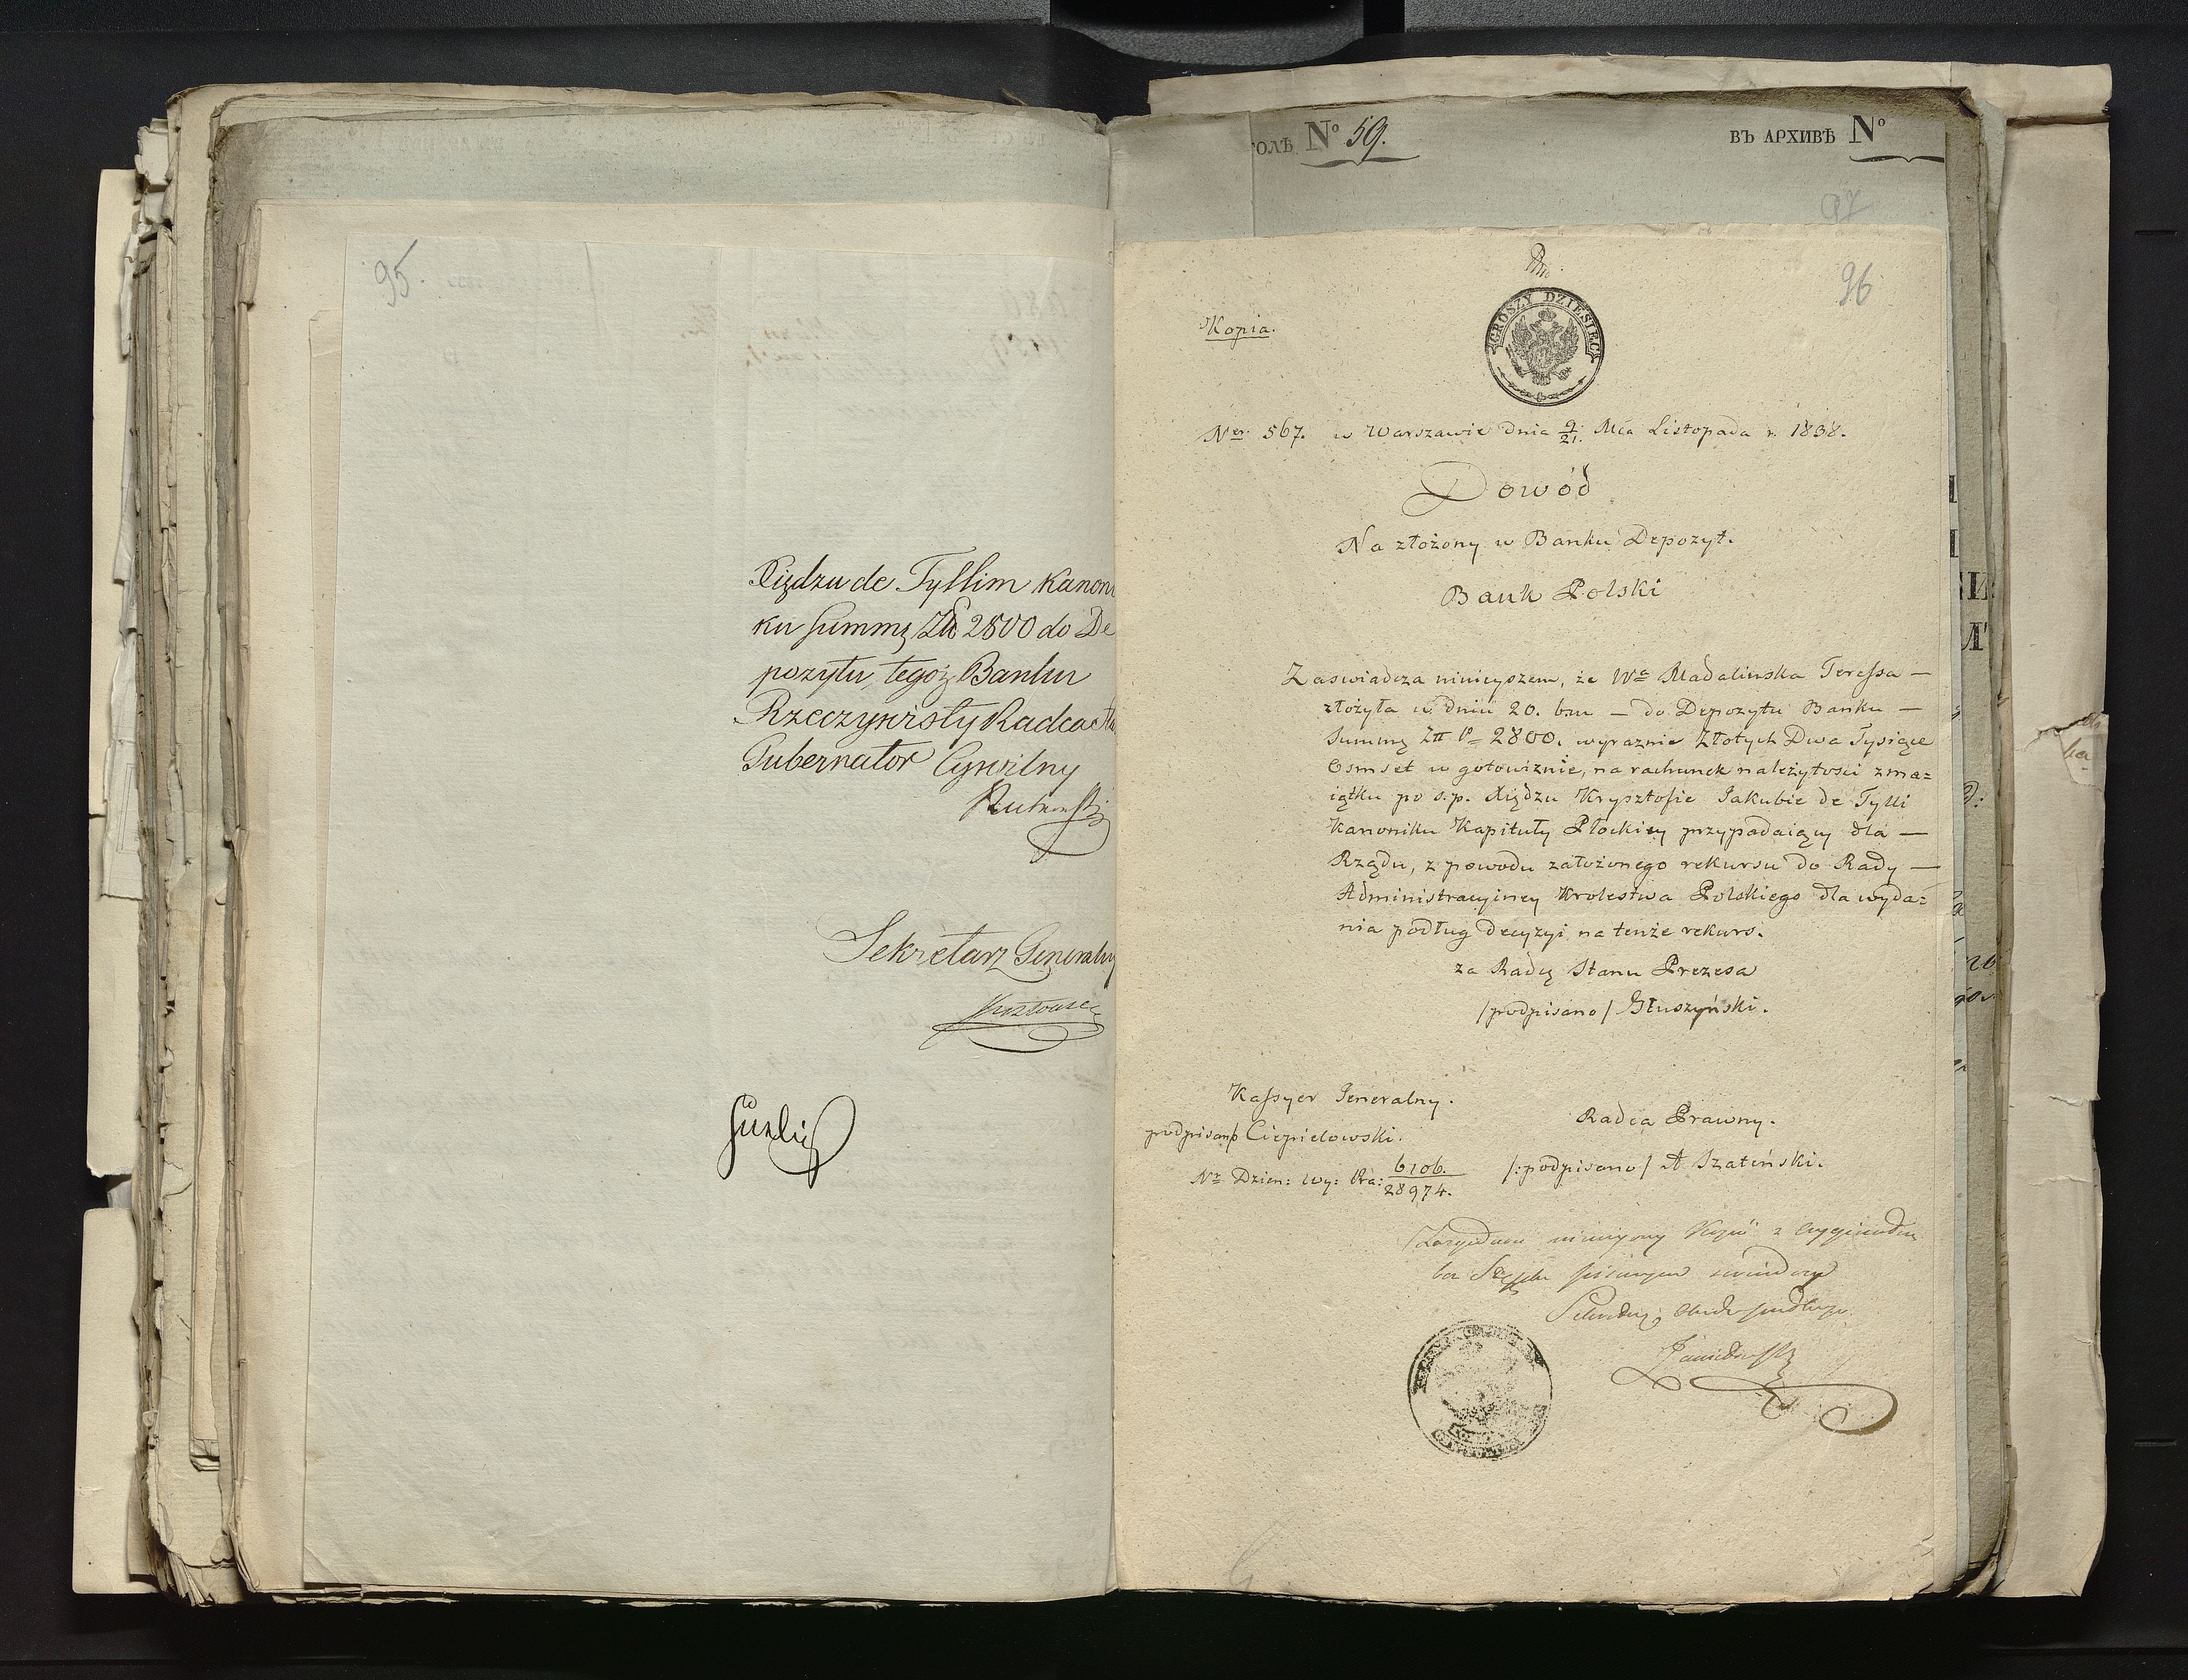 95.
Xiędzu de Tyllim Kanoni
ku summę Złł 2800 do De
pozytu tegoż Banku
Rzeczywisty Radca Stanu
Gubernator Cywilny
Sekretarz Generalny
№ 59.
ВЪ АРХИВѢ №
97
96
Kopia.
GROSZY DZIESIĘĆ
Ner. 567. w Warszawie dnia 9/21. Mca Listopada r. 1838.
Dowód
Na złożony w Banku Depozyt.
Bank Polski
Zaswiadcza ninieyszem, że Wa Madalinska Teressa —
złożyła w dniu 20. b.m — do Depozytu Banku —
Summę Złł Po 2800. wyraznie Złotych Dwa Tysiące
Osmset w gotowiznie, na rachunek należytosci z ma=
iątku po s.p. Xiędzu Krysztofie Jakubie de Tylli
Kanoniku Kapituły Płockiey przypadaiący dla —
Rządu, z powodu założonego rekursu do Rady —
Administracyiney Krolestwa Polskiego dla wyda=
nia podług decyzyi na tenże rekurs.
za Radcę Stanu Prezesa
/podpisano/ Głuszyński.
Kassyer Generalny.
podpisano/ Ciepielowski.
Radca Prawny.
/:podpisano/ A Szateński.
Nr Dzien: wy: Pra: 6106./28974.